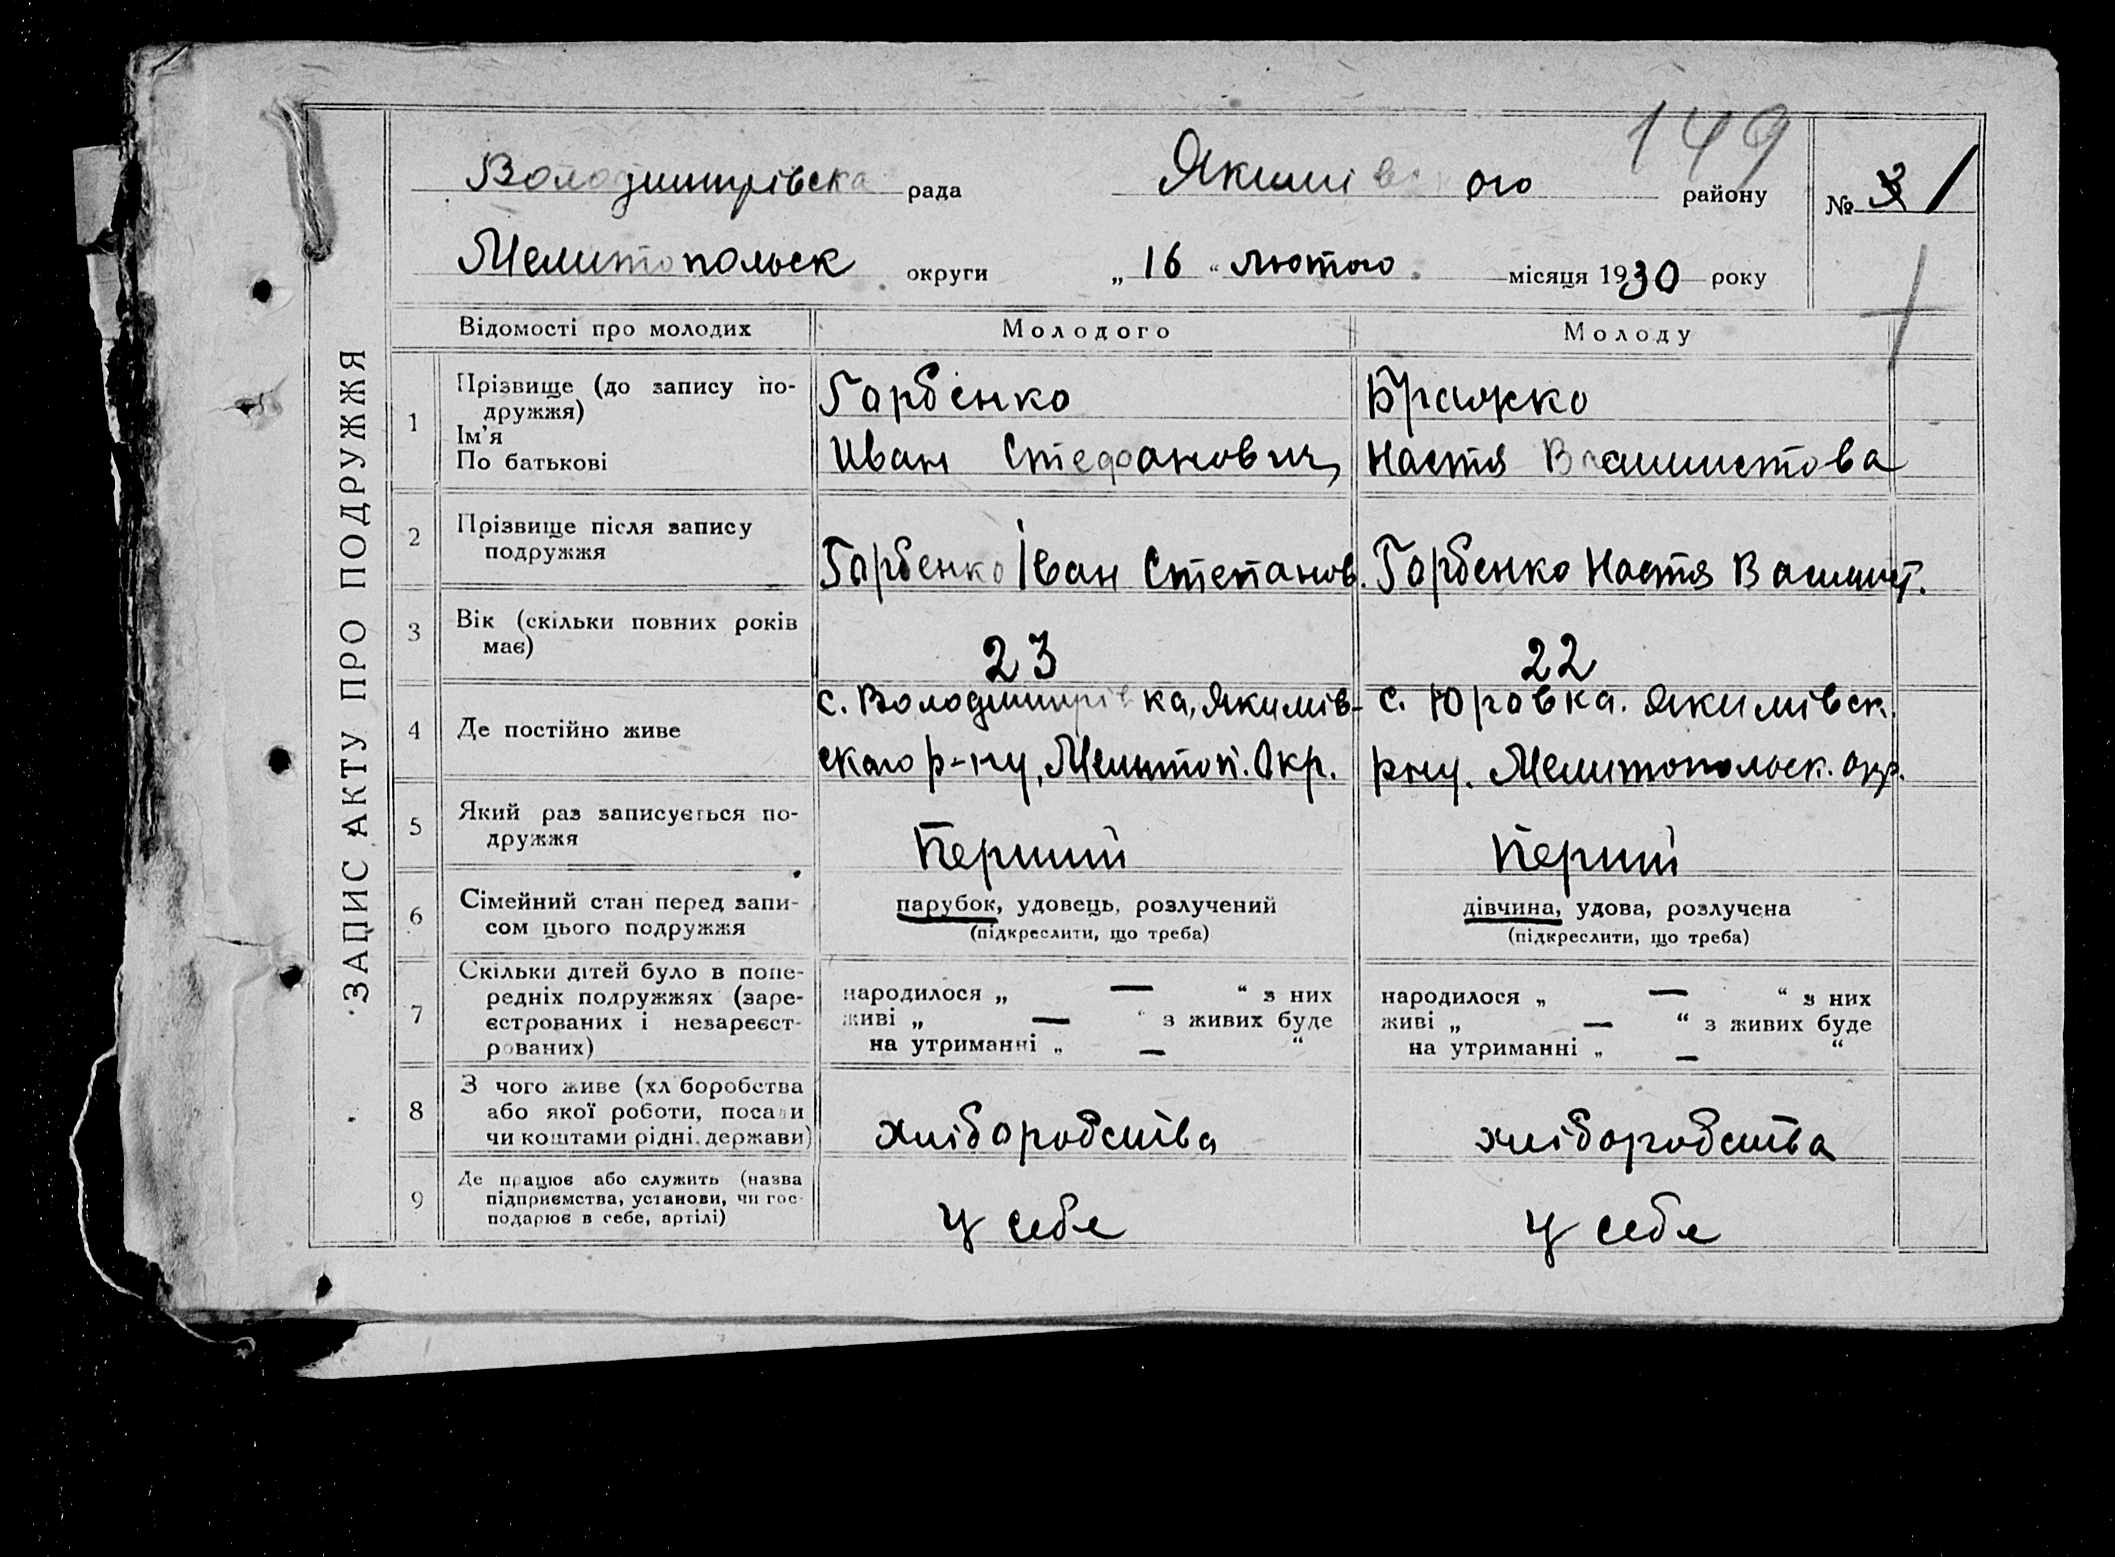 149
Володимирівска рада Якимівского району № 3 1
Мелитопольск округи „ 16 “ лютого місяця 1930 року
ЗАПИС АКТУ ПРО ПОДРУЖЖЯ
Відомості про молодих Молодого Молоду
1 Прізвище (до запису по-
дружжя)
Ім'я
По батькові
Гарбенко
Иван Стефанович
Бражко
Настя
2 Прізвище після запису
подружжя
Гарбенко Іван Степанов.
Гарбенко Настя
3 Вік (скільки повних років
має)
23
22
4 Де постійно живе
с. Володимирівка, Якимів-
ского р-ну, Мелитоп. Окр.
с. Юровка. Якимівск.
рну. Мелитопольск. окр.
5 Який раз записується по-
дружжя
Перший
Перший
6 Сімейний стан перед запи-
сом цього подружжя
парубок, удовець, розлучений
(підкреслити, що треба)
дівчина, удова, розлучена
(підкреслити, що треба)
7 Скільки дітей було в попе-
редніх подружжях (заре-
єстрованих і незареєст-
рованих)
народилося „ — “ з них
живі „ — “ з живих буде
на утриманні „ — “
народилося „ — “ з них
живі „ — “ з живих буде
на утриманні „ — “
8 З чого живе (хліборобства
або якої роботи, посади
чи коштами рідні, держави)
хліборобства
хліборобства
9 Де працює або служить (назва
підприємства, установи, чи гос-
подарює в себе, артілі)
у себе
у себе